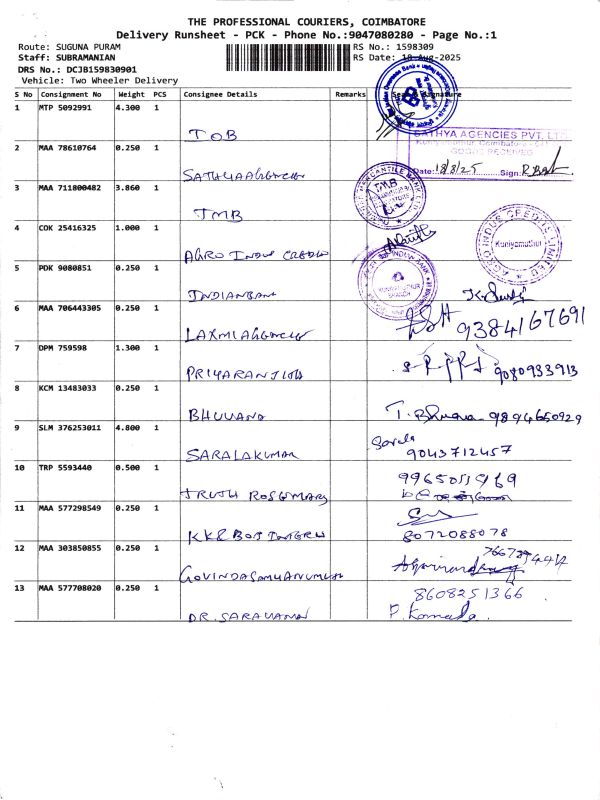 THE PROFESSIONAL COURIERS, COIMBATORE
Delivery Runsheet - PCK - Phone No.:9047080280 - Page No.:1
Route: SUGUNA PURAM RS No.: 1598309
Staff: SUBRAMANIAN RS Date: 18-Aug-2025
DRS No.: DCJB159830901
Vehicle: Two Wheeler Delivery
S No Consignment No Weight PCS Consignee Details Remarks Seal & Signature
1 MTP 5092991 4.300 1
IOB
SATHYA AGENCIES PVT. LTD
Kuniyamuthur, Coimbatore
GOODS RECEIVED
2 MAA 78610764 0.250 1
Date: 18/8/25 Sign:
SATHYAAGENCIES
3 MAA 711800482 3.860 1
TMB
TMB
4 COK 25416325 1.000 1
AGRO INDUS CREDITS LIMITED
Kuniyamuthur
AGRO INDUS CREDIT
5 PDK 9080851 0.250 1
INDIAN BANK
BRANCH
INDIANBANK
6 MAA 706443305 0.250 1
9384167691
LAXMIAGENCIES
7 DPM 759598 1.300 1
9080933913
PRIYARANJITH
8 KCM 13483033 0.250 1
BHUVANA T. Bhuvana 9894650929
9 SLM 376253011 4.800 1
Sarala
SARALAKUMAR 9043712457
10 TRP 5593440 0.500 1
TRUTH ROSEMARY
11 MAA 577298549 0.250 1
KKR BOT INTGRU 8072088078
12 MAA 303850855 0.250 1
13 MAA 577708020 0.250 1
8608251366
DR. SARAVANAN P. Komala